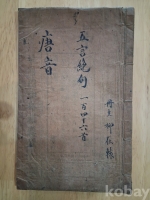 唐音
五言絶句
一百四十六首
冊主 柳
kobay